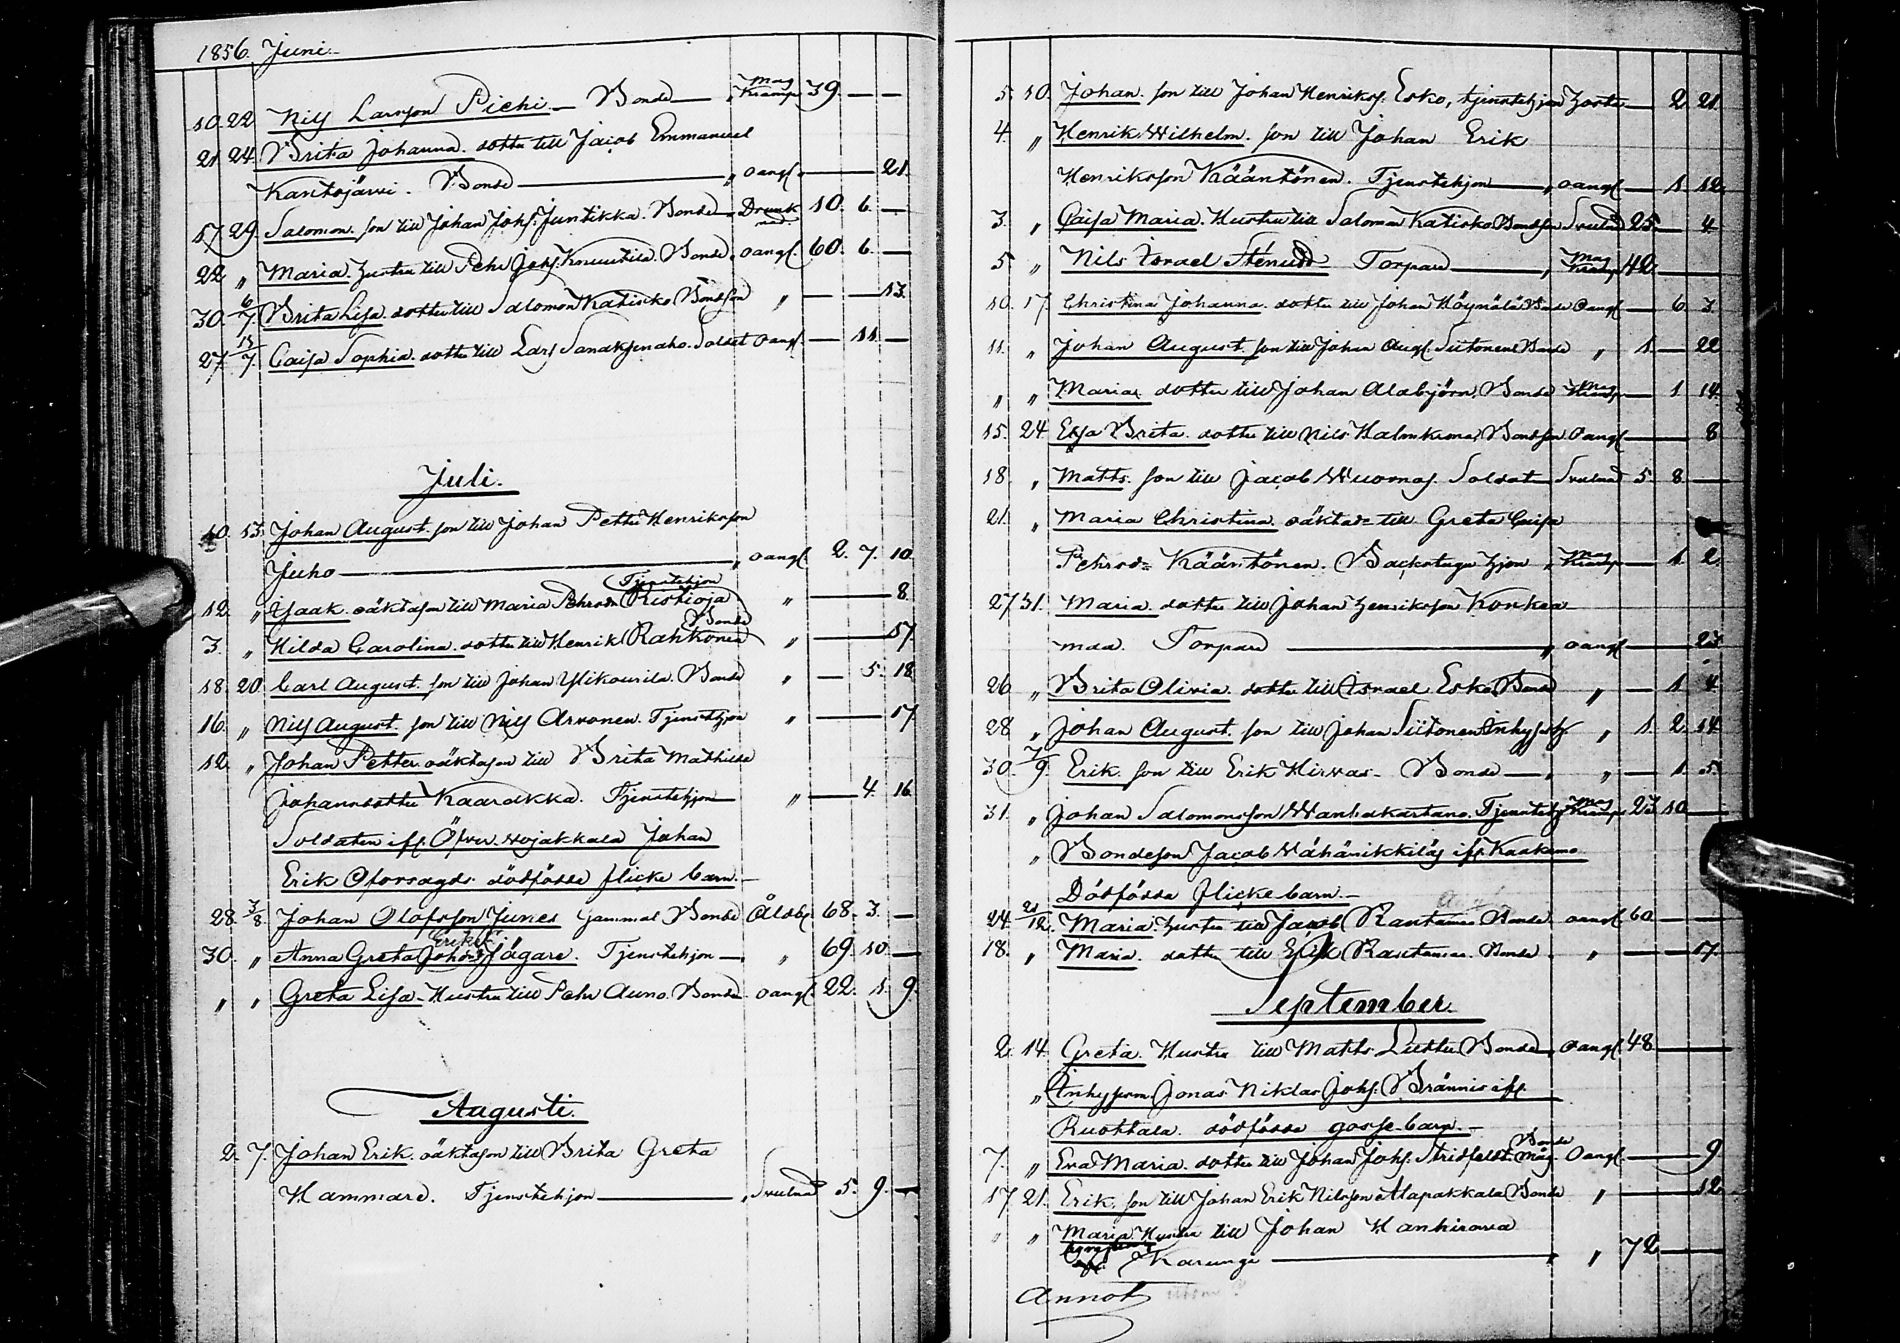 1856. Juni.
10. 22. Nils Larsson Pichi. — Bonde — „ Mag Kramp 39. — —
21. 24. Brita Johanna. dotter till Jacob Emmanuel
Kantojärvi. Bonde — „ oangf. — — 21.
17. 29. Salomon. son till Johan Johs. Juntikka. Bonde „ Drunknad. 10. 6. —
22. „ Maria. Hustru till Pehr Johs. Knuutila. Bonde. „ oangf. 60. 6. —
30. 6/7. Brita Lisa. dotter till Salomon Katisko Bondson „ — — 13.
27. 13/7. Caisa Sophia. dotter till Lars Sanaksenaho. Soldat oangf. — 11. —
Juli.
10. 13. Johan August. son till Johan Petter Henriksson
Juho — „ oangf. 2. 7. 10.
12. „ Isaak. oäkta son till Maria Pehrsdr Ristioja Tjenstehjon „ — — 8.
3. „ Hilda Carolina. dotter till Henrik Rahkonen Bonde „ — — 17.
18. 20. Carl August. son till Johan Ylikourila. Bonde „ — 5. 18.
16. „ Nils August. son till Nils Arvonen. Tjenstehjon „ — — 17.
12. „ Johan Petter. oäkta son till Brita Mathilda
Johansdotter Kaarakka. Tjenstehjon — „ — 4. 16.
Soldaten ifr. Öfver Wojakkala Johan
Erik Oforsagds dödfödda flicke barn. —
28. 3/8. Johan Olofsson Junes Gammal Bonde Åldb. 68. 3. —
30. „ Anna Greta Johans Eriks Jägare. Tjenstehjon — „ 69. 10. —
„ „ Greta Lisa. Hustru till Pehr Auno. Bonde. oangf. 22. 1. 9.
Augusti.
2. 7. Johan Erik. oäkta son till Brita Greta
Hammare. Tjenstehjon — „ Svulnad 5. 9. —
5. 10. Johan. son till Johan Henrikss. Esko, tjenstehjon Hosta — 2. 21.
4. „ Henrik Wilhelm. son till Johan Erik
Henriksson Kääntönen. Tjenstehjon — „ oangf — 1. 12.
3. „ Caisa Maria. Hustru till Salomon Katisko Bondson Svulnad 25. — 4.
5. „ Nils Israel Stenudd Torpare — „ Mag Kramp 42. — —
10. 17. Christina Johanna. dotter till Johan Höynälä Bonde Oangf — 6. 3.
11. „ Johan August. son till Johan Aug. Siitonen Bonde „ 1. — 22.
„ „ Maria. dotter till Johan Alabjörn. Bonde Mag Kramp — 1. 14.
15. 24. Eva Brita. dotter till Nils Bondson Oangf — — 8.
18. „ Matts. son till Jacob Wuornos. Soldat Svulnad 5. 8. —
21. „ Maria Christina. oäkta dr till Greta Caisa
Pehrsdr Kääntönen. Backstugu hjon „ Mag Kramp — 1. 2.
27. 31. Maria. dotter till Johan Henriksson Korkea
maa. Torpare — „ oangf — — 23.
26. „ Brita Olivia. dotter till Israel Esko Bonde „ — 1. 4.
28. „ Johan August. son till Johan Siitonen Inhyses „ 1. 2. 14.
30. 7/9. Erik. son till Erik Hirvas. Bonde — „ „ — 1. 5.
31. „ Johan Salomonsson Wanhakartano. Tjenstehj. Mag Kramp 23. 10. —
„ Bondeson Jacob Wähänikkiläs ifr. Kaakamo
Dödfödda flicke barn. —
24. 21/12. Maria. Hustru till Jacob Rantamaa Bonde. oangf 60. — —
18. „ Maria. dotter till Erik Rantamaa. Bonde. „ — — 17.
September.
2. 14. Greta. Hustru till Matts Luttu Bonde „ Oangf. 48. — —
„ Inhysesm. Jonas Niklas Johs. Brännis ifr.
Ruottala. dödfödda gosse barn. —
7. „ Eva Maria. dotter till Johan Johs. Stridfeldt Bonde Måg Oangf. — — 9.
17. 21. Erik. son till Johan Erik Nilsson Alapakkala Bonde „ — — 12.
„ „ Maria. Hustru till Johan Hankiravia
Karungi — „ „ 72. — —
Annot